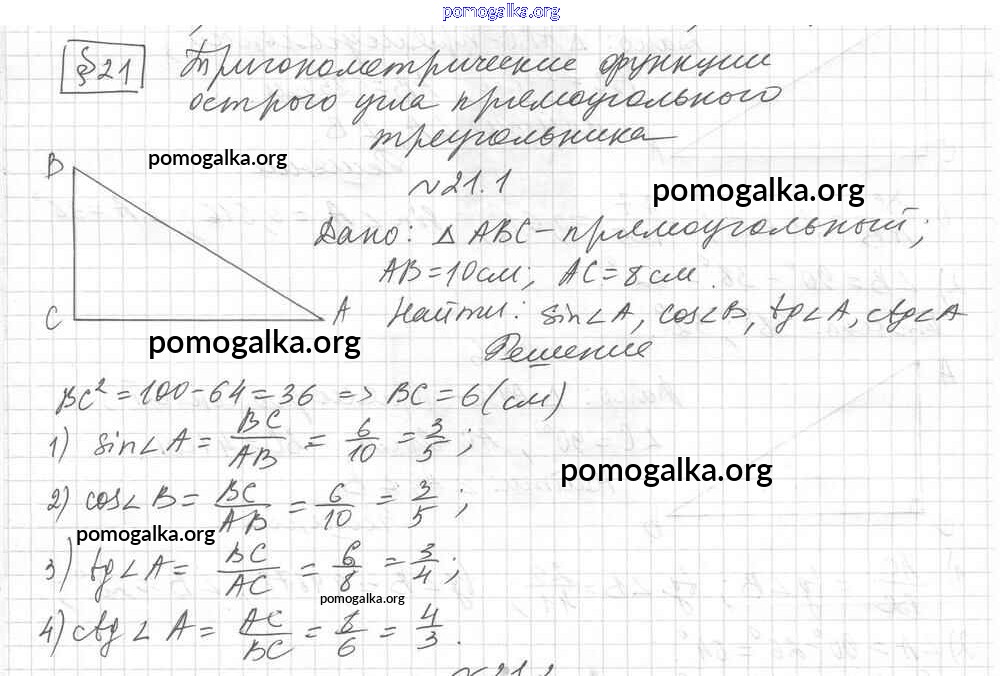 pomogalka.org
§21 Тригонометрические функции
острого угла прямоугольного
треугольника
pomogalka.org
№21.1
pomogalka.org
B
Дано: △ ABC - прямоугольный;
AB = 10 см; AC = 8 см.
C
A
Найти: sin∠A, cos∠B, tg∠A, ctg∠A
pomogalka.org
Решение
BC² = 100 - 64 = 36 => BC = 6 (см)
1) sin∠A = BC/AB = 6/10 = 3/5;
pomogalka.org
2) cos∠B = BC/AB = 6/10 = 3/5;
pomogalka.org
3) tg∠A = BC/AC = 6/8 = 3/4;
pomogalka.org
4) ctg∠A = AC/BC = 8/6 = 4/3.